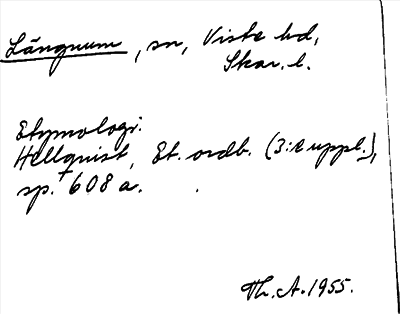 Långnum, sn, Viste hd,
Skar. l.
Etymologi:
Hellquist, Et. ordb. (3:e uppl.),
sp. 608 a.
Th. A. 1955.